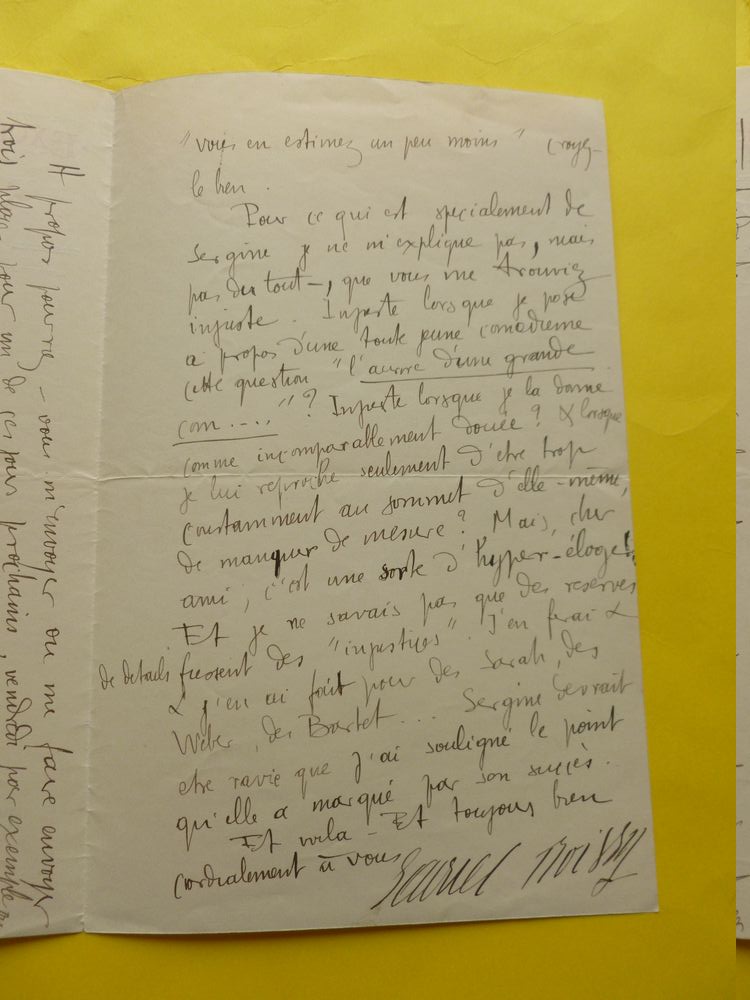 "vous en estimez un peu moins" croyez-
le bien.
Pour ce qui est specialement de
Sergine je ne m'explique pas, mais
pas du tout –, que vous me trouviez
injuste. Injuste lorsque je pose
a propos d'une toute jeune comedienne
cette question "l'aurore d'une grande
com...."? Injuste lorsque je la donne
comme incomparablement douée? & lorsque
je lui reproche seulement d'etre trop
constamment au sommet d'elle-même,
de manquer de mesure? Mais, cher
ami, c'est une sorte d'hyper-éloge!
Et je ne savais pas que des reserves
de details fussent des "injustices". J'en ferai &
& j'en ai fait pour des Sarah, des
Weber, des Bartet... Sergine devrait
etre ravie que j'ai souligné le point
qu'elle a marqué par son succès.
Et voila – Et toujours bien
cordialement à vous
A propos pourriez-vous m'envoyer ou me faire envoyer
trois places pour un de ces jours prochains, vendredi par exemple